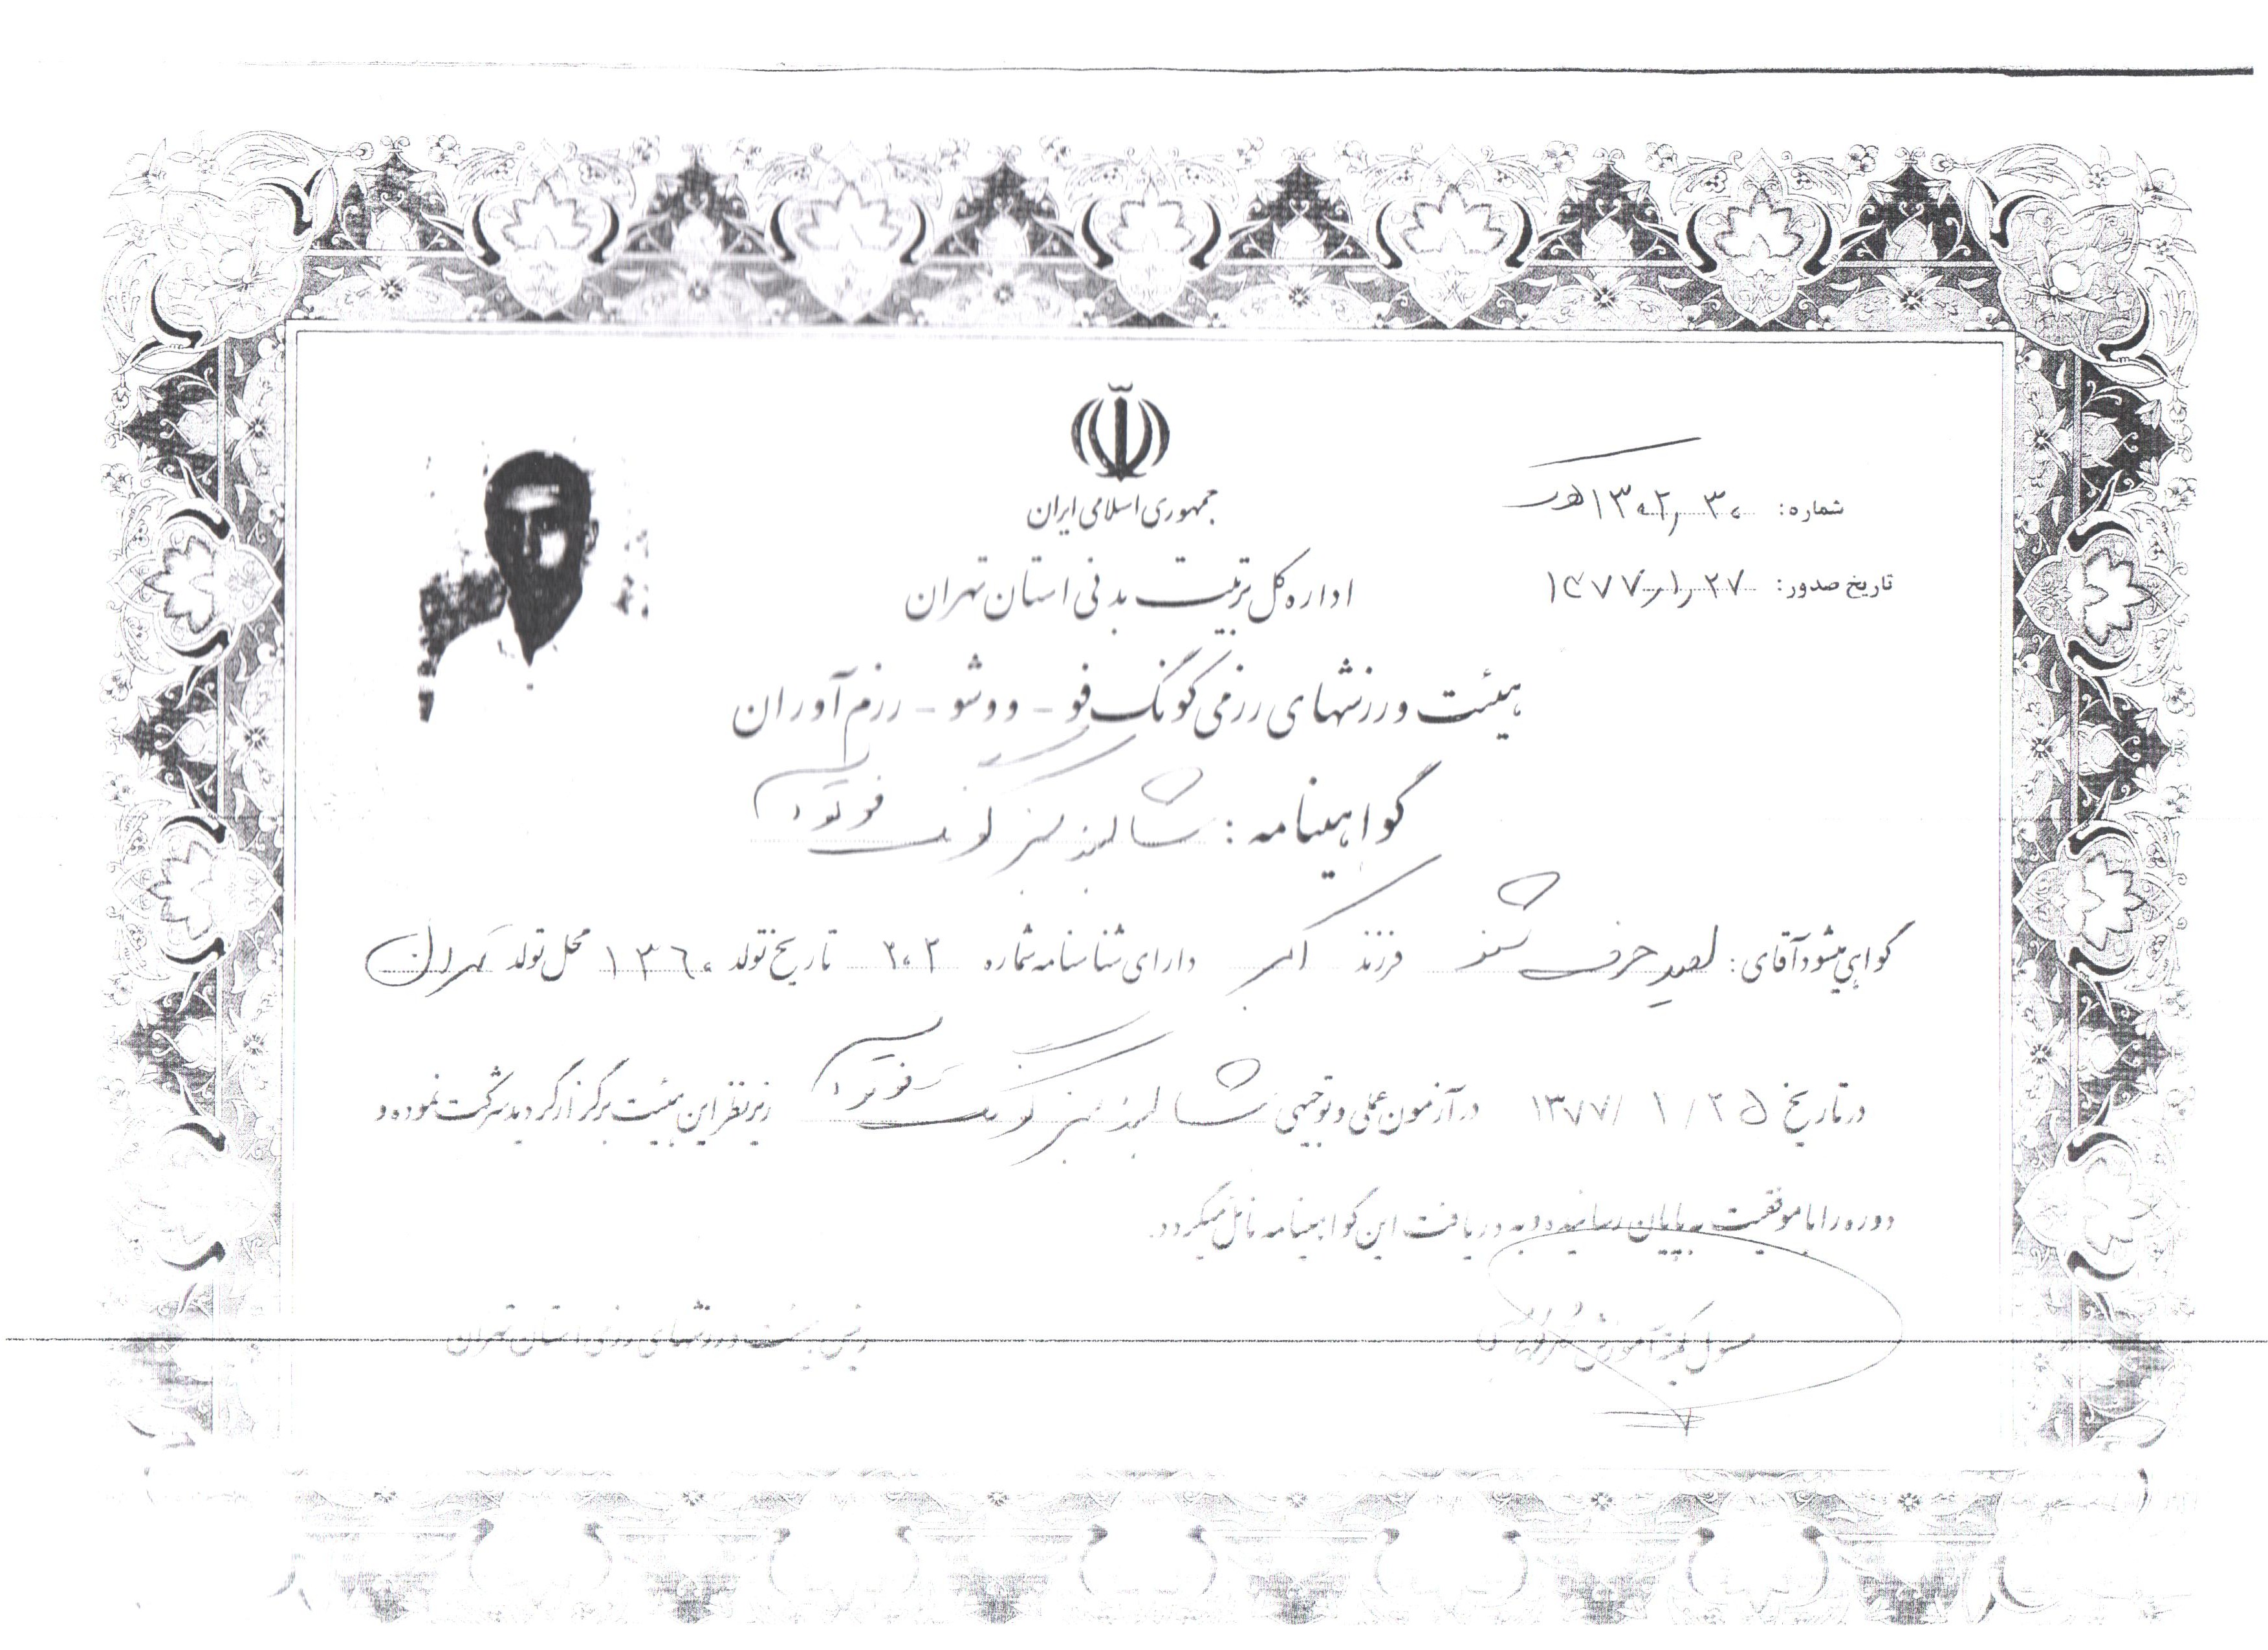 جمهوری اسلامی ایران
شماره: ۱۳۰۲ر۳۰
تاریخ صدور: ۱۳۷۷ر۱ر۲۷
اداره کل تربیت بدنی استان تهران
هیئت ورزشهای رزمی کونگ فو - ووشو - رزم آوران
گواهینامه: شال بند سبز کونگ فو توآ
گواهی میشود آقای: حرف شنو فرزند اکبر دارای شناسنامه شماره ۲۰۲ تاریخ تولد ۱۳۶۰ محل تولد تهران
در تاریخ ۲۵ / ۱ / ۱۳۷۷ در آزمون عملی و توجیهی شال بند سبز کونگ فو توآ زیر نظر این هیئت برگزار گردید شرکت نموده و
دوره را با موفقیت به پایان رسانیده و به دریافت این گواهینامه نائل میگردد.
مسئول کمیته آموزش
رئیس هیئت ورزشهای رزمی استان تهران